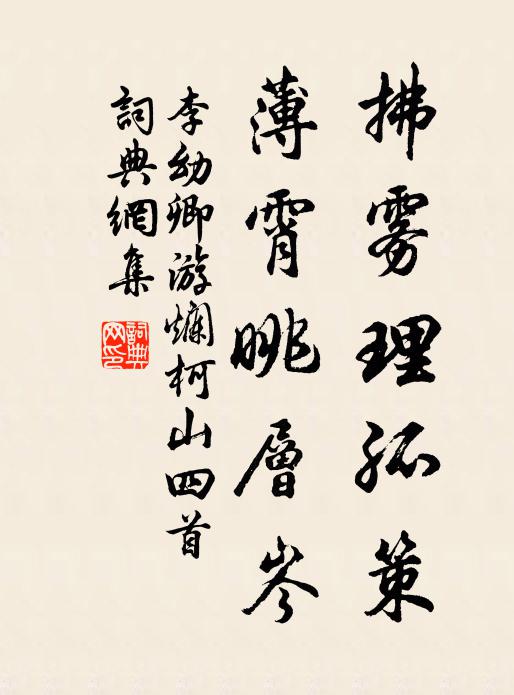 拂雾理孤策
薄霄眺層岑
李幼卿游爛柯山四首
詞典網集
詞典网印